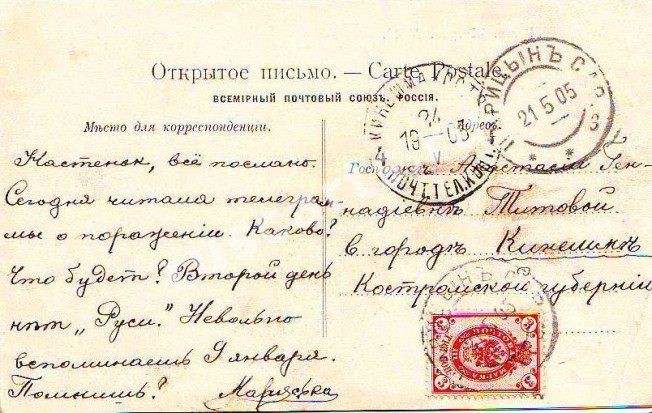 Открытое письмо. — Carte Postale.
ВСЕМІРНЫЙ ПОЧТОВЫЙ СОЮЗЪ. РОССІЯ
Мѣсто для корреспонденціи.
Адресъ.
Настеньк, всё послано.
Сегодня читала телеграм-
мы о пораженіи. Каково?
Что будетъ? Второй день
нѣт „Руси." Невольно
вспоминаешь 9 января.
Помнишь?
Господи Анастасіи Ген-
надіевнѣ Титовой
в городѣ Кинешмѣ
Костромской губерніи
КИНЕШМА КОСТР.
24
19—05
V
4
ПОЧТ.ТЕЛ.КОН.
ЦАРИЦЫНЪ САР.
21.5.05
3
3
3
ПОЧТОВАЯ МАРКА